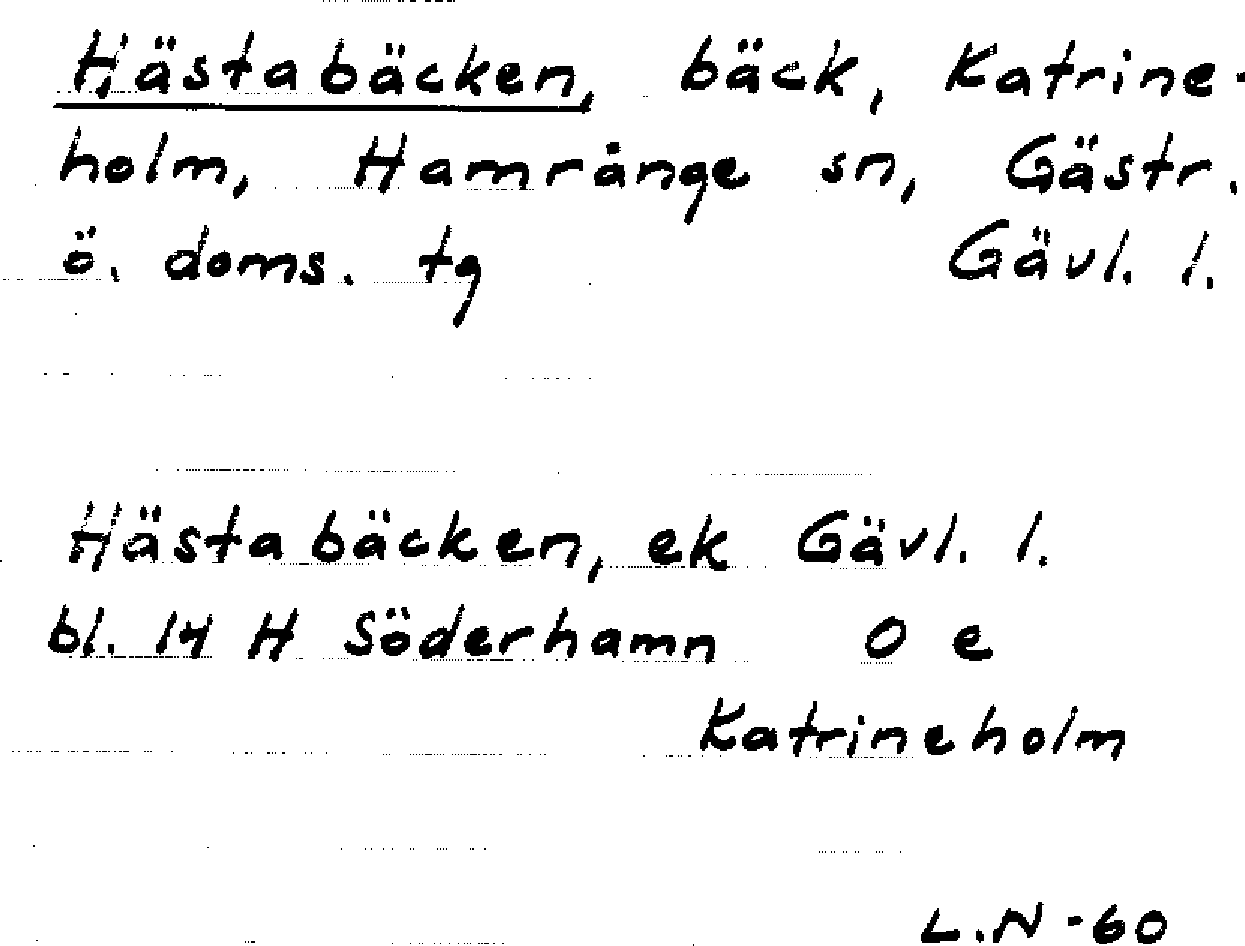 Hästabäcken, bäck, Katrine-
holm, Hamrånge sn, Gästr.
ö. doms. tg Gävl. l.
Hästabäcken, ek Gävl. l.
bl. 14 H Söderhamn O e
Katrineholm
L.N -60